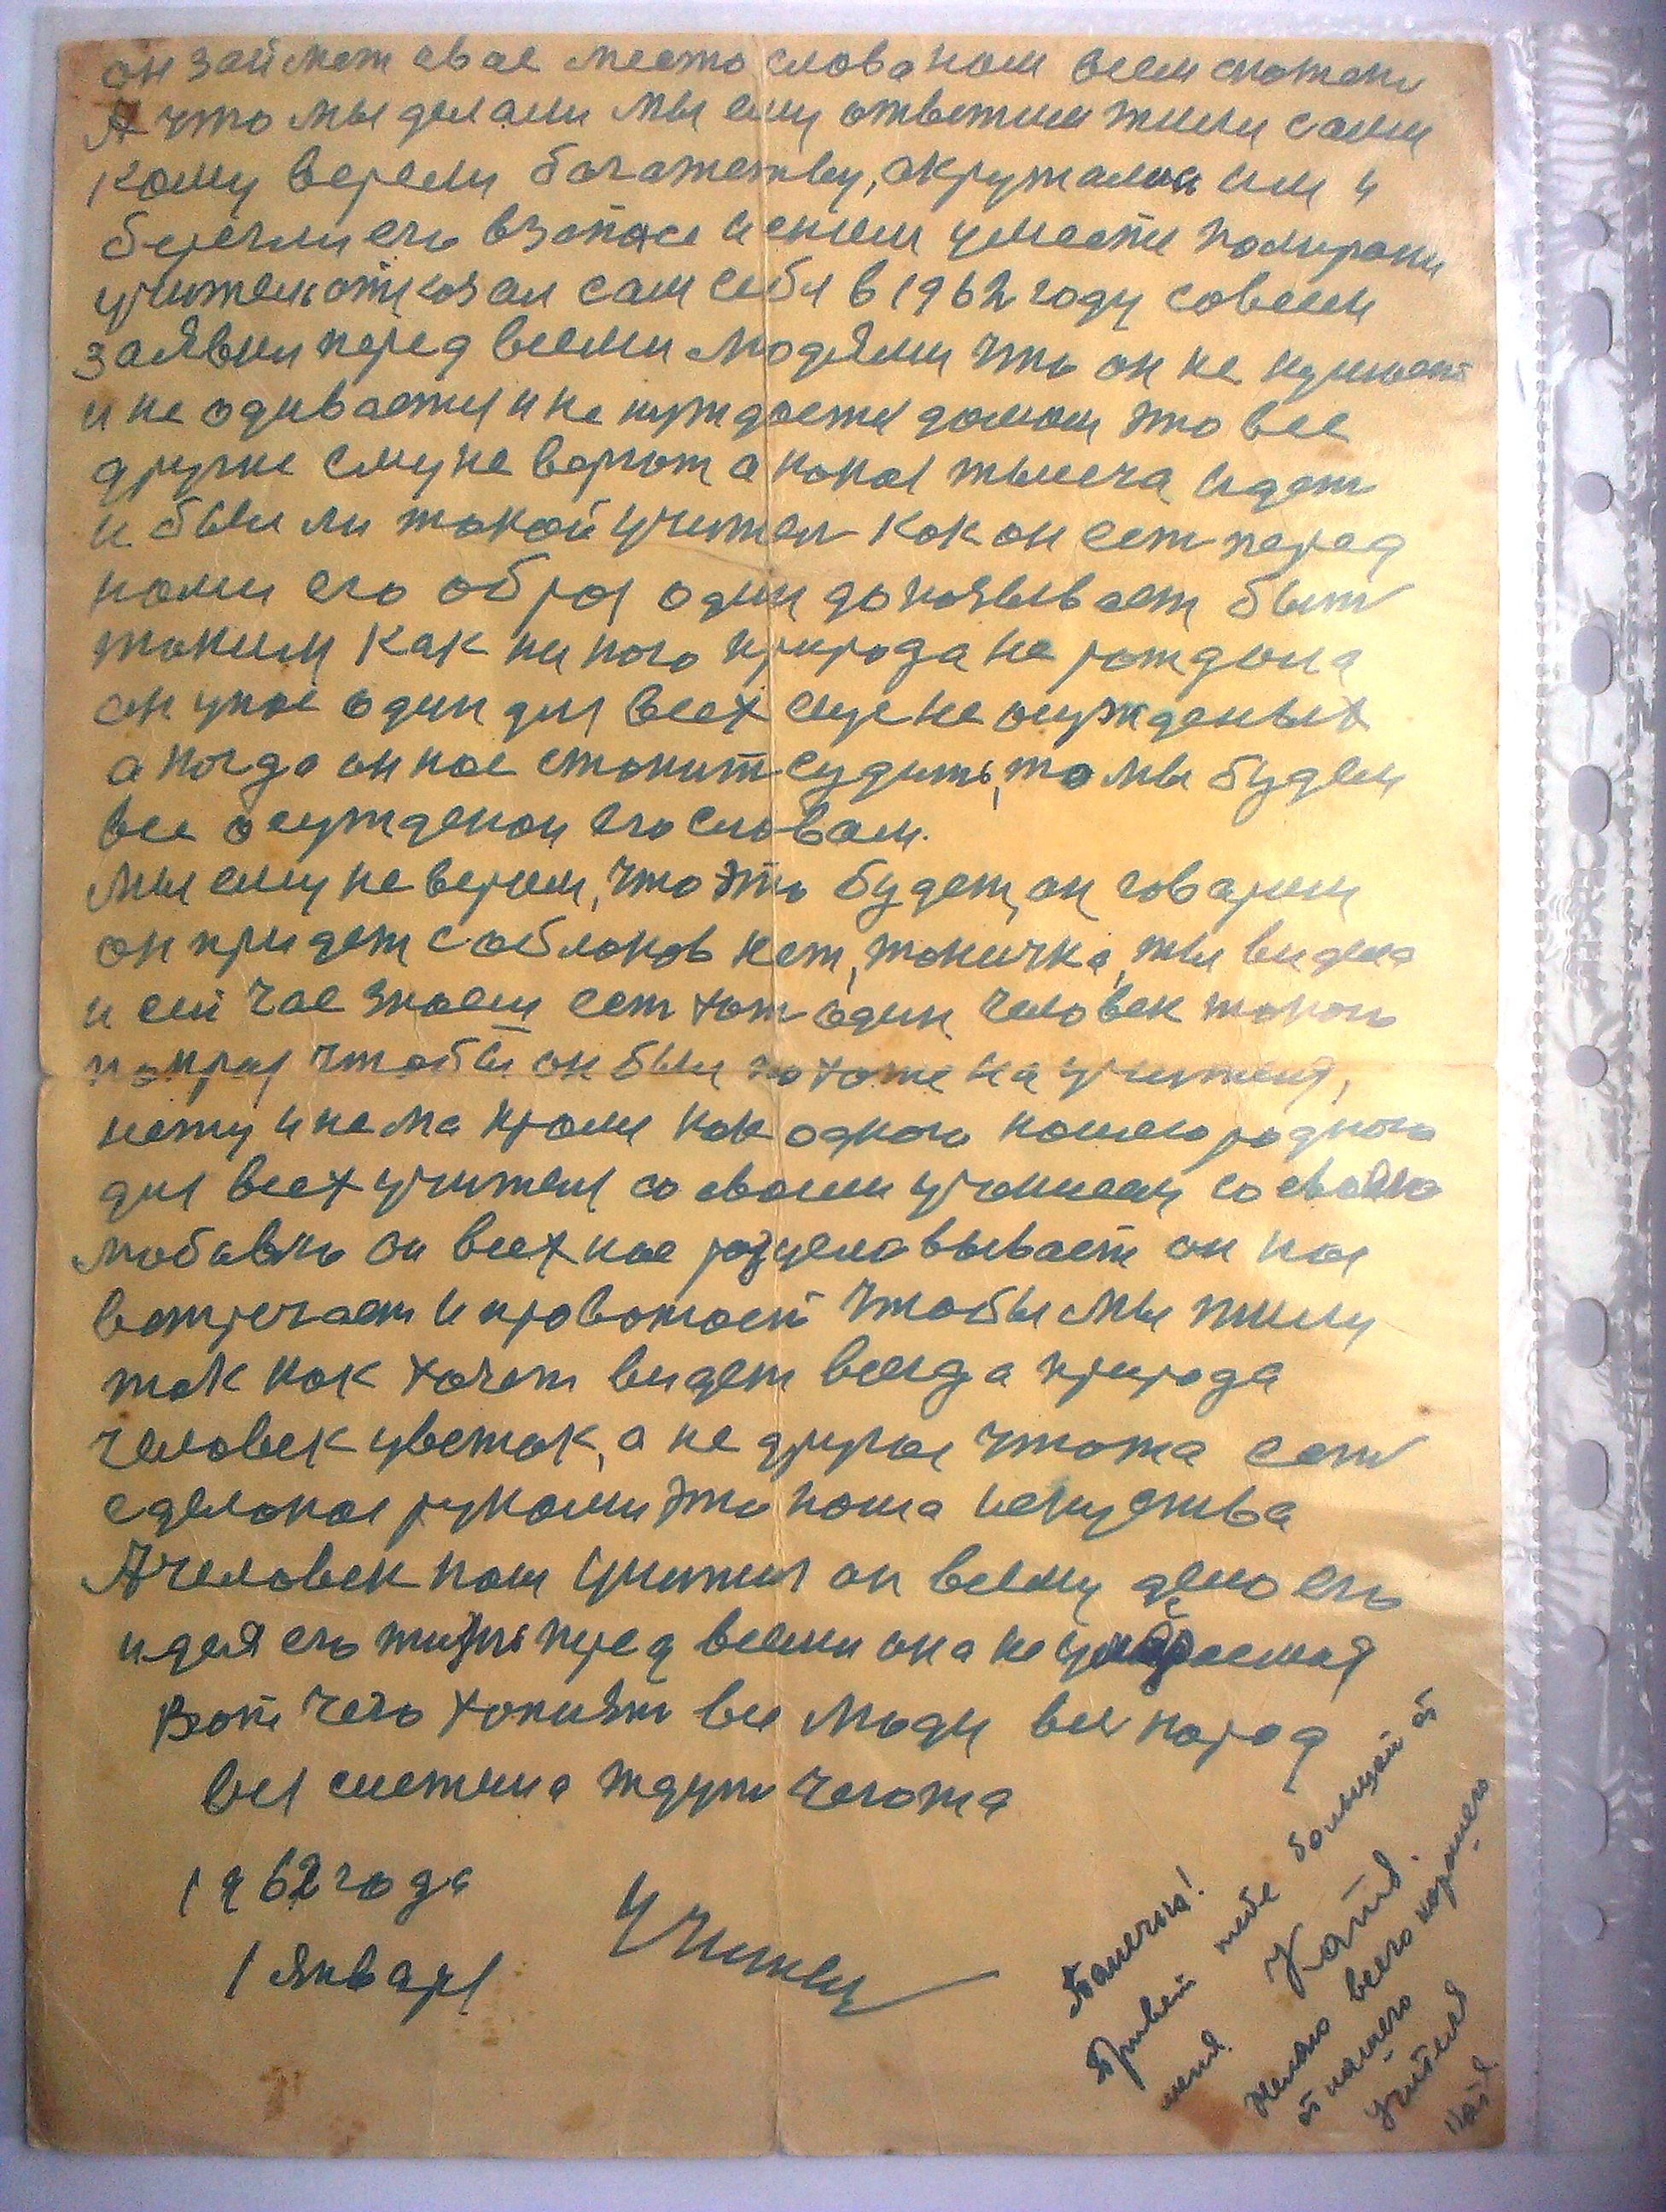 он займет свае место слова нам всем скажет
А что мы делали мы ему ответим жили сами
кому верели богатетву, окружалися им и
берегли его взапасе и с ним уместе помирали
учитель отказал сам себя в 1962 году совсем
заявил перед всеми людями что он не кушает
и не одивается и не нуждается домом это все
другие ему не верют а какая тысеча идет
и был ли такой учител как он ест перед
нами его образ один доказывает быт
таким как ни кого природа не рождала
он у нас один для всех еще не осужденых
а когда он нас станит судить, то мы будем
все осуждены его словам.
Мы ему не верим, что это будет, он говарил
он придет с облаков нет, таничка, ты видела
и сей час знаеш ест хот один человек такого
напряд чтобы он был похоже на учителя,
нету и нема кроми как одного нашего родного
для всех учителя со своим учением со своею
любовью он всех нас розцеловывает он нас
встречает и провожает чтобы мы жили
так как хочет видет всегда природа
человек цветок, а не другое чтота ест
сделаное руками это наша искуства
А человек наш Учител он всему дело его
идея его жизнь перед всеми она не умераемая
Вот чего хотият все люди вес народ
вся система ждут чегота
1962 года
1 Января
Учитель
Танечка!
Привет тебе большой от
меня. Катя.
Желаю всего хорошего
от нашего
Учителя
Катя.